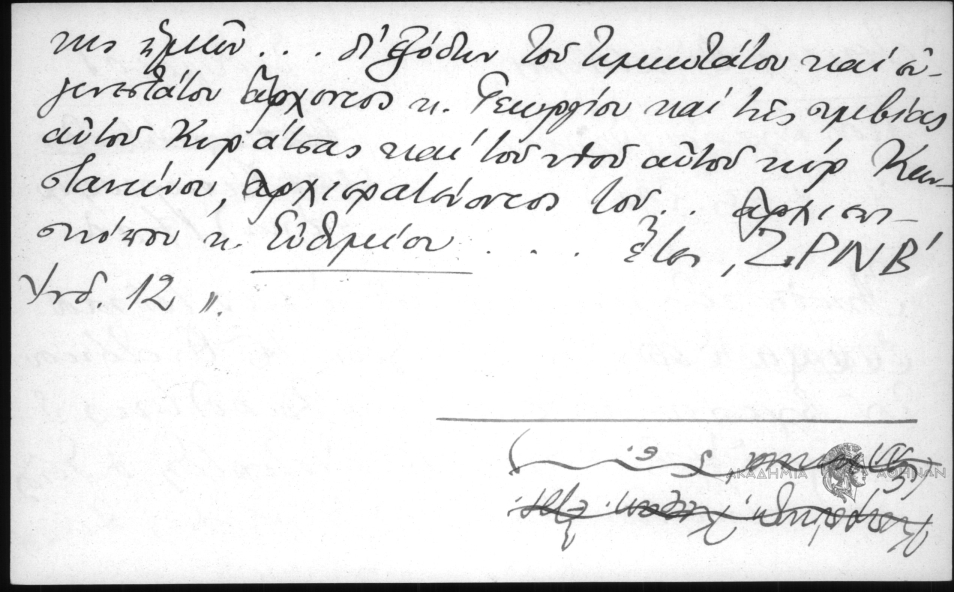 της ἡμῶν . . . δι' ἐξόδων τοῦ τιμιωτάτου καὶ εὐ-
γενεστάτου ἄρχοντος κ. Γεωργίου καὶ τῆς συμβίας
αὐτοῦ Κυράτσας καὶ τοῦ υἱοῦ αὐτοῦ κὺρ Κων-
σταντίνου, ἀρχιερατεύοντος τοῦ . . ἀρχιεπι-
σκόπου κ. Εὐθυμίου . . . ἔτει ,ΖΡΝΒ΄
Ἰνδ. 12 ".
ΑΚΑΔΗΜΙΑ ΑΘΗΝΩΝ